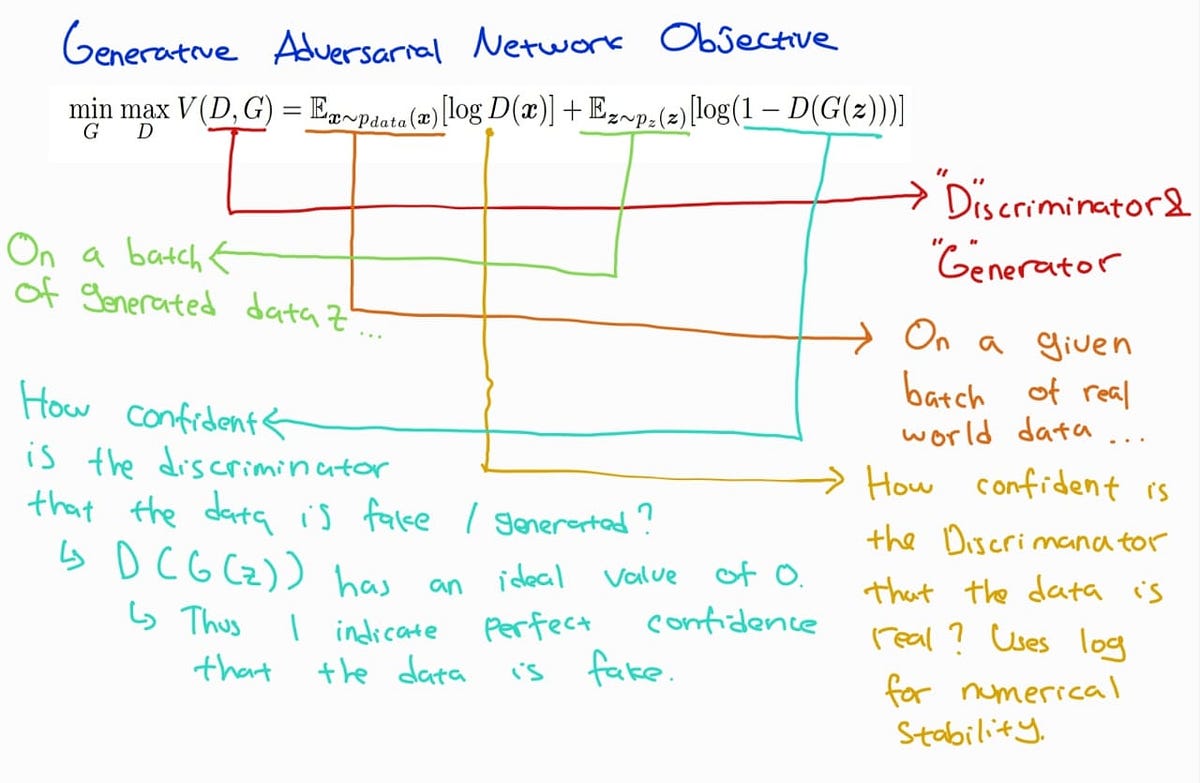 Generative Adversarial Network Objective
min max V(D, G) = 𝔼x∼pdata(x)[log D(x)] + 𝔼z∼pz(z)[log(1 − D(G(z)))]
G D
"D"iscriminator &
"G"enerator
On a batch
of generated data z ...
On a given
batch of real
world data ...
How confident
is the discriminator
that the data is fake / generated?
↳ D(G(z)) has an ideal value of 0.
↳ Thus 1 indicate perfect confidence
that the data is fake.
How confident is
the Discrimanator
that the data is
real? Uses log
for numerical
Stability.